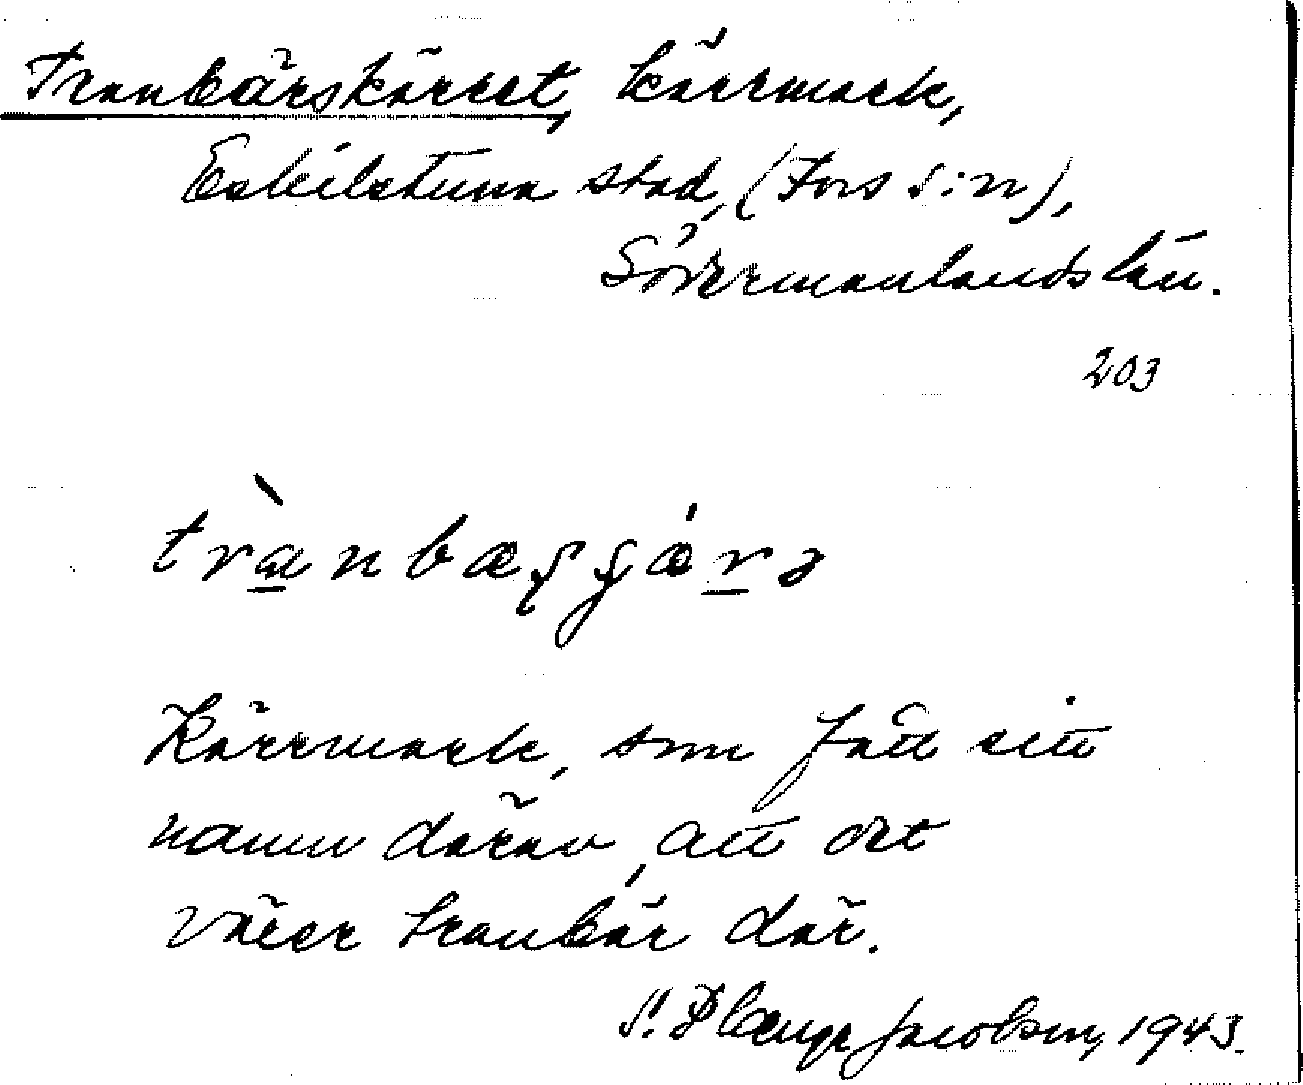 Tranbärskärret, kärrmark,
Eskilstuna stad, (Fors s:n),
Södermanlands län.
203
trànbæʂʂǽrə
Kärrmark, som fått sitt
namn därav, att det
växer tranbär där.
Jacobson, 1943.